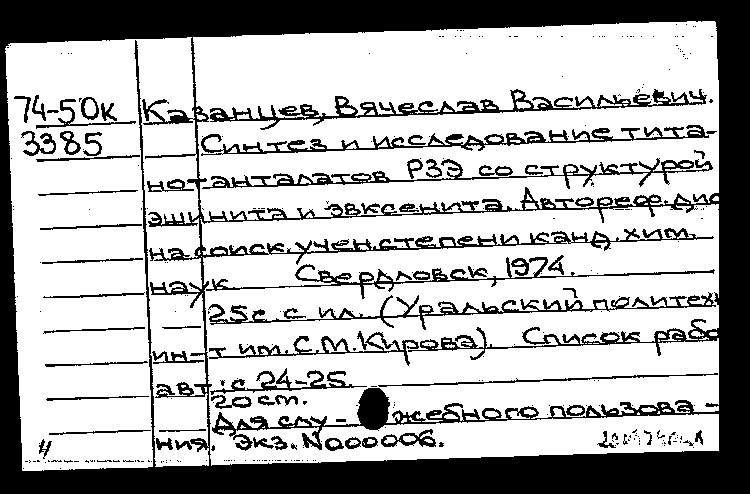 74-50к Казанцев, Вячеслав Васильевич.
3385 Синтез и исследование тита-
нотанталатов РЗЭ со структурой
эшинита и эвксенита. Автореф. дис
на соиск. учен. степени канд. хим.
наук Свердловск, 1974.
25с. с ил. (Уральский политехн
ин-т им. С.М. Кирова). Список рабо
авт.: с. 24-25.
20 см.
Для слу- жебного пользова-
ния. Экз. №000006.